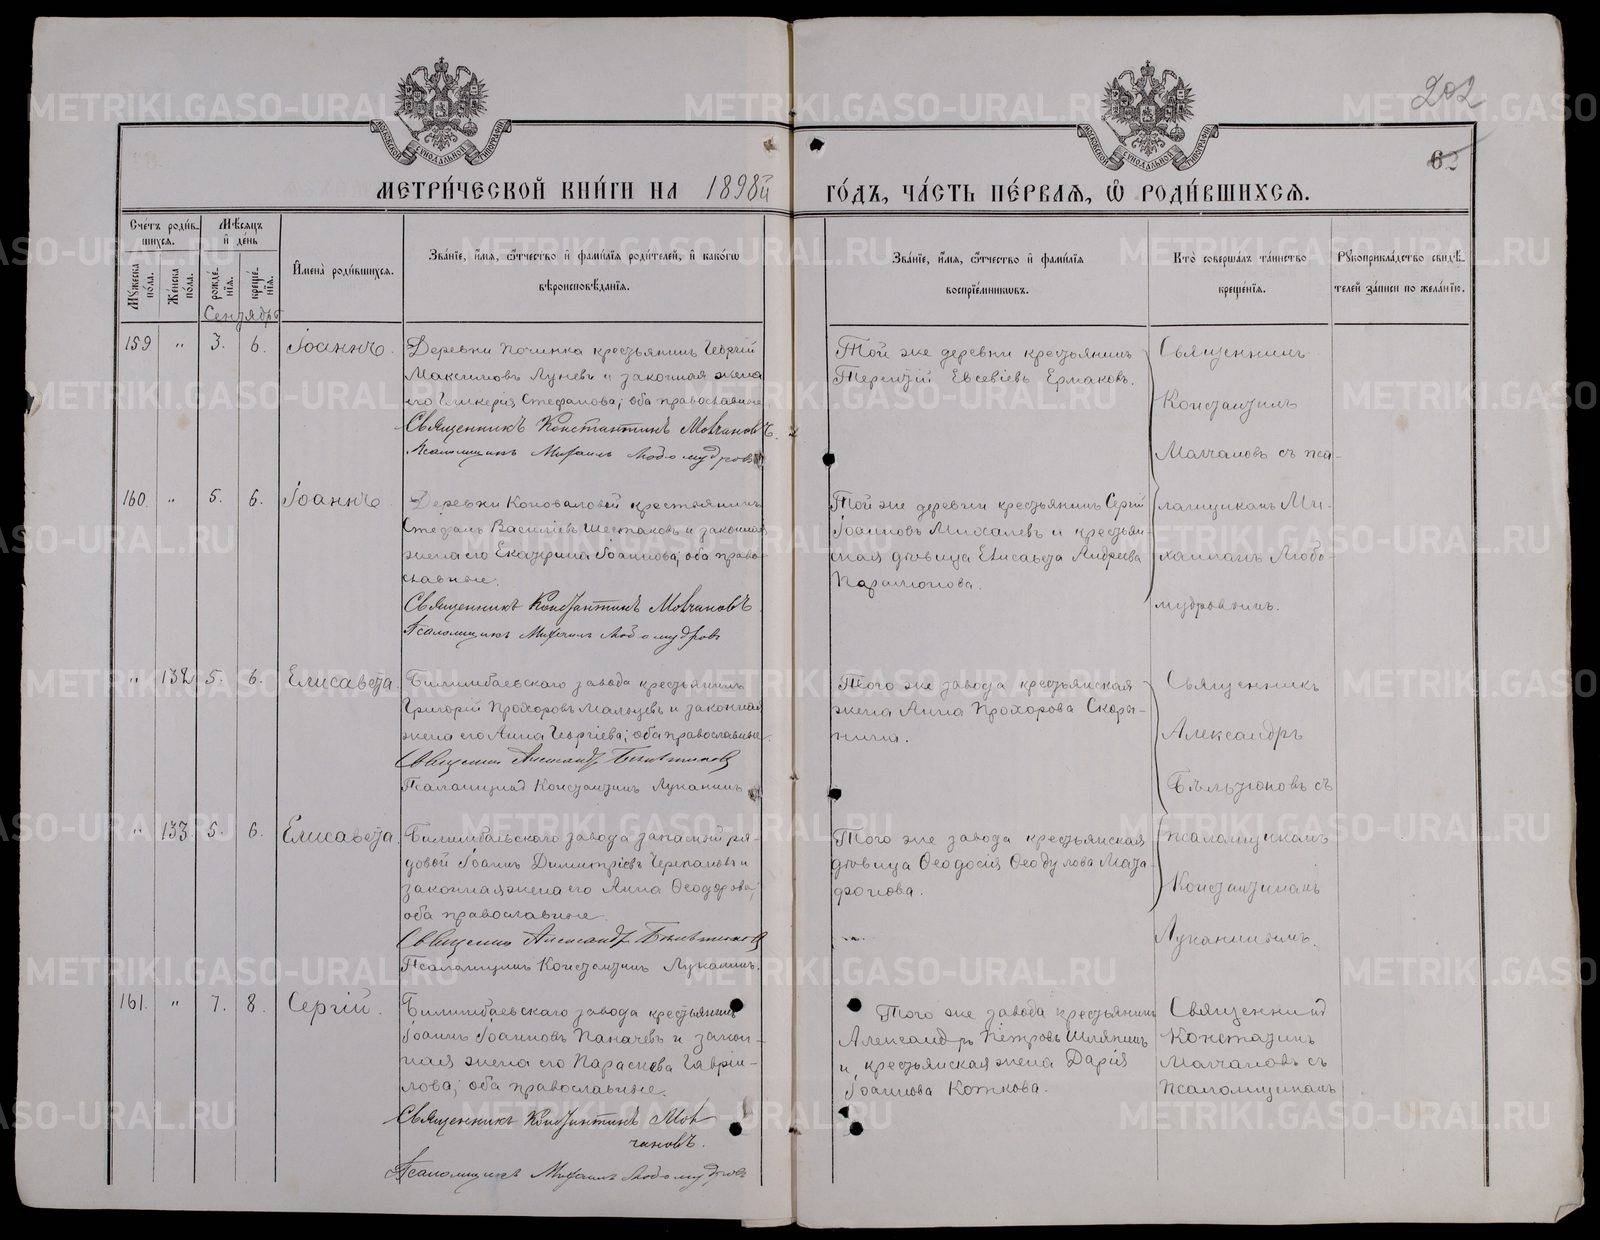 202
63
МЕТРИ́ЧЕСКОЙ КНИ́ГИ НА 1898й ГО́ДЪ, ЧА́СТЬ ПЕ́РВАЯ, Ѿ РОДИ́ВШИХСЯ.
Сче́тъ роди́в-
шихся.
Му́жеска по́ла.
Же́нска по́ла.
Мѣ́сяцъ
и де́нь
рожде́нія.
креще́нія.
Сентябрь
Имена̀ роди́вшихся.
Зва́ніе, и́мя, ѻ́тчество и фами́лія роди́телей, и како́гѡ
вѣроисповѣ́данія.
Зва́ніе, и́мя, ѻ́тчество и фами́лія
воспріе́мникѡвъ.
Кто̀ соверша́лъ та́инство
креще́нія.
Рꙋкоприкла́дство свидѣ́-
телей за́писи по жела́нію.
159 " 3. 6. Іоаннъ.
Деревни Починка крестьянинъ Георгій
Максимовъ Луневъ и законная жена
его Гликерія Стефанова; оба православные
Священникъ Константинъ Мовчановъ.
Псаломщикъ Михаилъ Любомудровъ
Той же деревни крестьянинъ
Терентій Евсевіевъ Ермаковъ.
Священникъ
Константинъ
Молчановъ съ пса-
ломщикомъ Ми-
хаиломъ Любо-
мудровымъ.
160. " 5. 6. Іоаннъ
Деревни Коноваловой крестьянинъ
Стефанъ Василіевъ Шестаковъ и законная
жена его Екатерина Іоаннова; оба право-
славные.
Священникъ Константинъ Мовчановъ
Псаломщикъ Михаилъ Любомудровъ
Той же деревни крестьянинъ Сергій
Іоанновъ Михалевъ и крестьян-
ская дѣвица Елисавета Андреева
Парамонова.
" 132 5. 6. Елисавета.
Билимбаевскаго завода крестьянинъ
Григорій Прохоровъ Мальцевъ и законная
жена его Анна Георгіева; оба православные.
Священникъ Александръ
Псаломщикъ Константинъ Луканинъ
Того же завода крестьянская
жена Анна Прохорова Скоры-
нина.
Священникъ
Александръ
Бѣльтюковъ съ
псаломщикомъ
Константиномъ
Луканинымъ.
" 133. 5. 6. Елисавета.
Билимбаевского завода запасный ря-
довой Іоаннъ Димитріевъ Черепановъ и
законная жена его Анна Ѳеодорова;
оба православные.
Священникъ Александръ
Псаломщикъ Константинъ Луканинъ.
Того же завода крестьянская
дѣвица Ѳеодосія Ѳеодулова Маза-
фонова.
161. " 7. 8. Сергій.
Билимбаевскаго завода крестьянинъ
Іоаннъ Іоанновъ Паначевъ и закон-
ная жена его Параскева Гавріи-
лова; оба православные.
Священникъ Константинъ Мов
чановъ.
Псаломщикъ Михаилъ Любомудровъ
Того же завода крестьянинъ
Александръ Петровъ Шляпинъ
и крестьянская жена Дарія
Іоаннова Кожкова.
Священникъ
Констатинъ
Молчановъ съ
Псаломщикомъ
METRIKI.GASO-URAL.RU